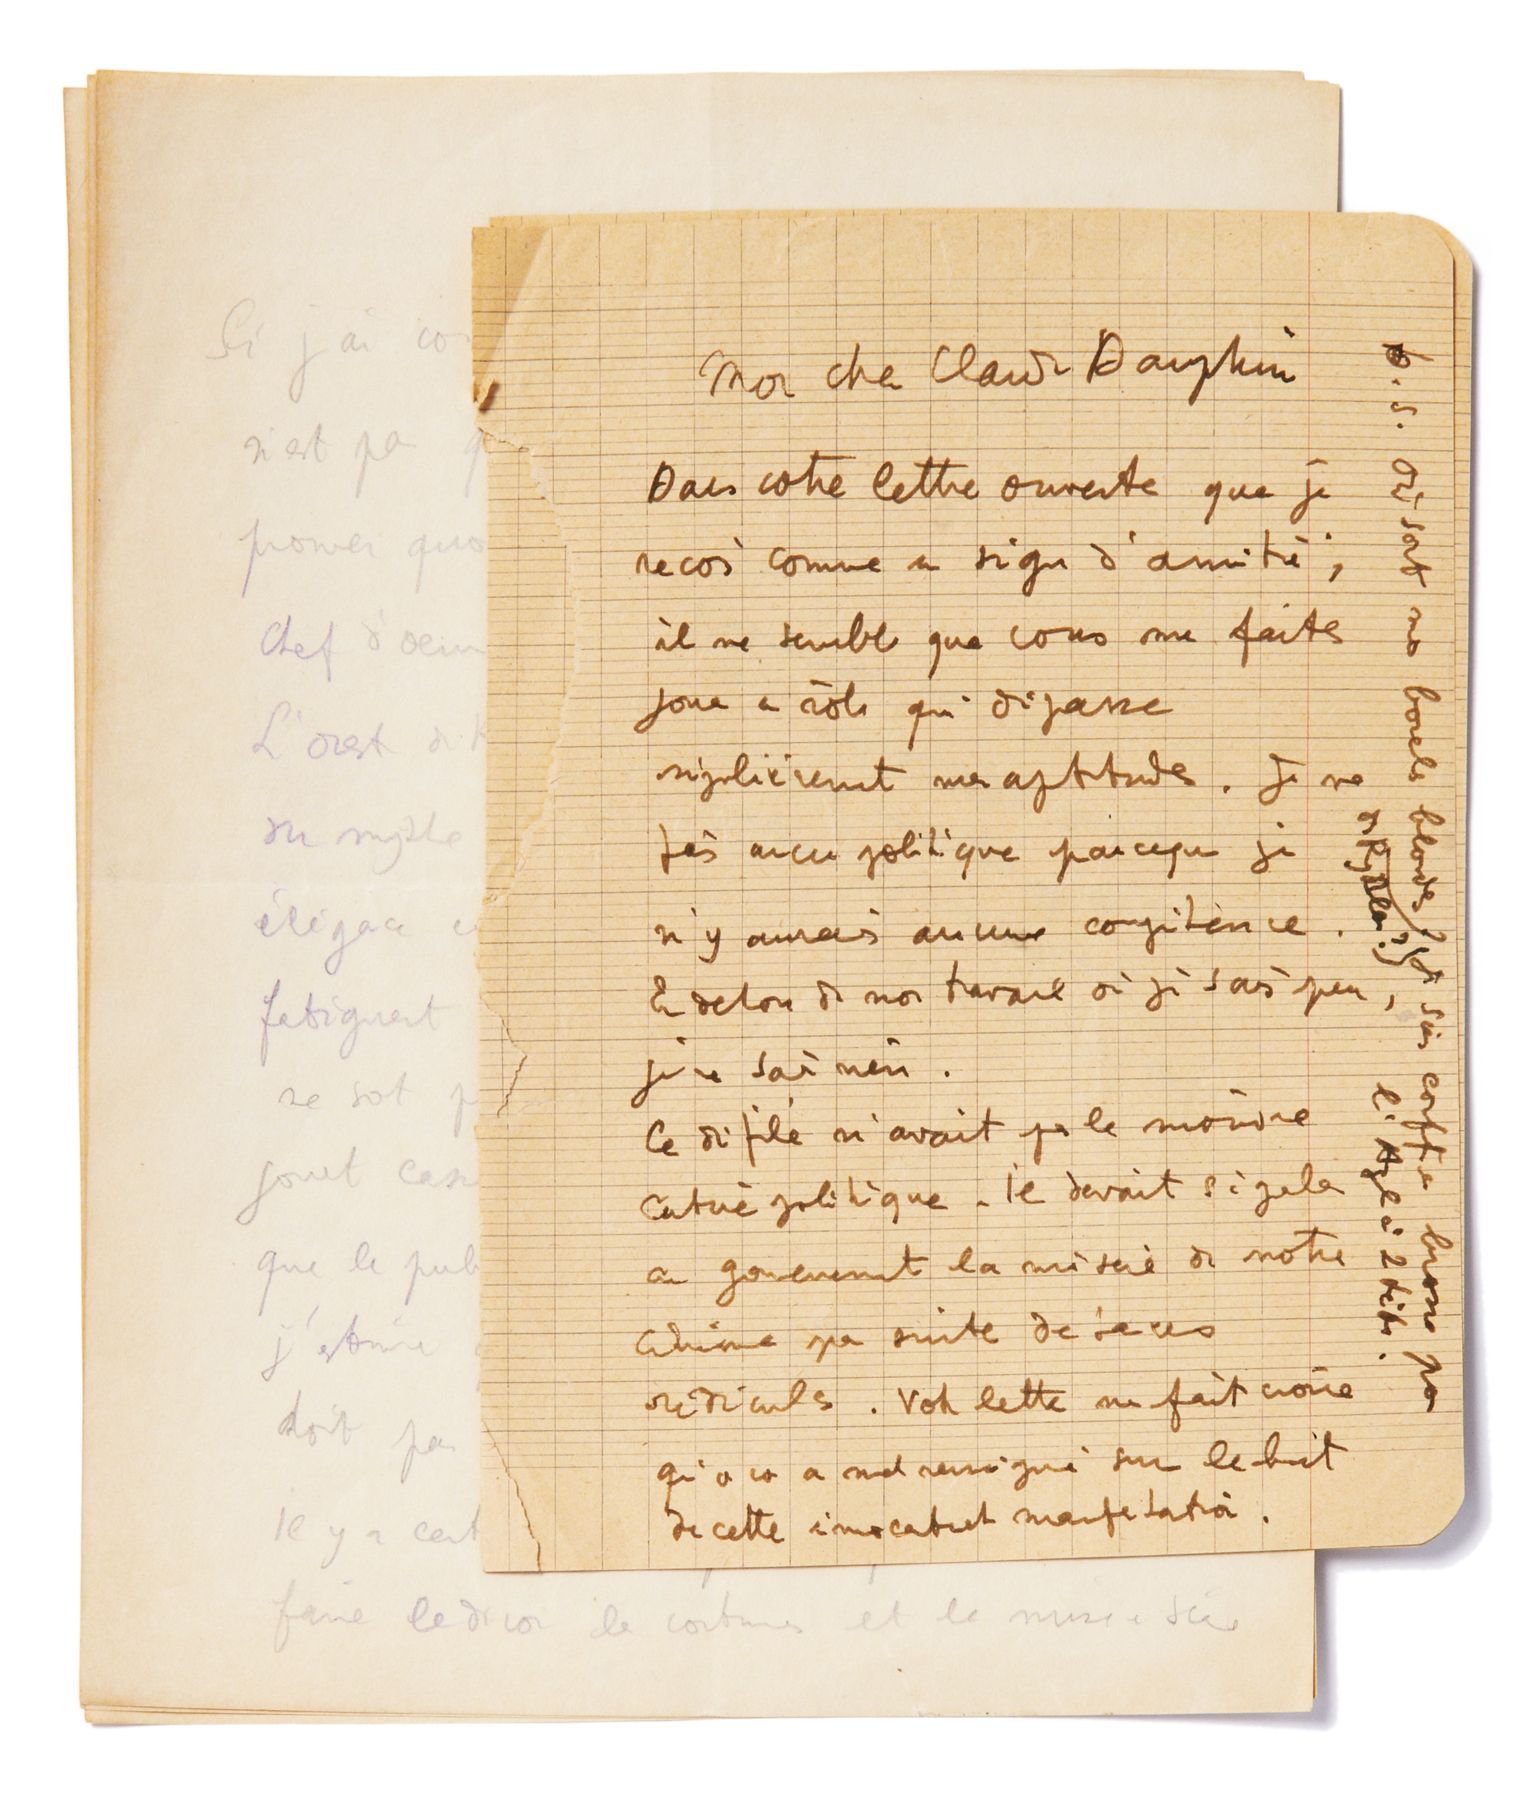 Mon cher Claude Dauphin
Dans votre lettre ouverte que je
reçois comme un signe d'amitié,
il me semble que vous me faites
jouer un rôle qui dépasse
singulièrement mes aptitudes. Je ne
fais aucune politique parce que je
n'y aurais aucune compétence.
En dehors de mon travail où je sais peu,
je ne sais rien.
Ce défilé n'avait pas le moindre
caractère politique. Il devait signaler
au gouvernement la misère de notre
cinéma par suite de taxes
ridicules. Votre lettre me fait croire
qu'on vous a mal renseigné sur le but
de cette innocente manifestation.
P.S. Où sont mes boucles blondes? Je suis coiffé en brosse par
l'Aigle à 2 têtes.
Si j'ai
n'est pas
prouver
Chef d'oeuvre
L'Oreste de
du mythe
élégance
fatiguent
ne sont
jouet
que le
j'estime
doit pas
Il y a
faire le décor les costumes et la mise en scène